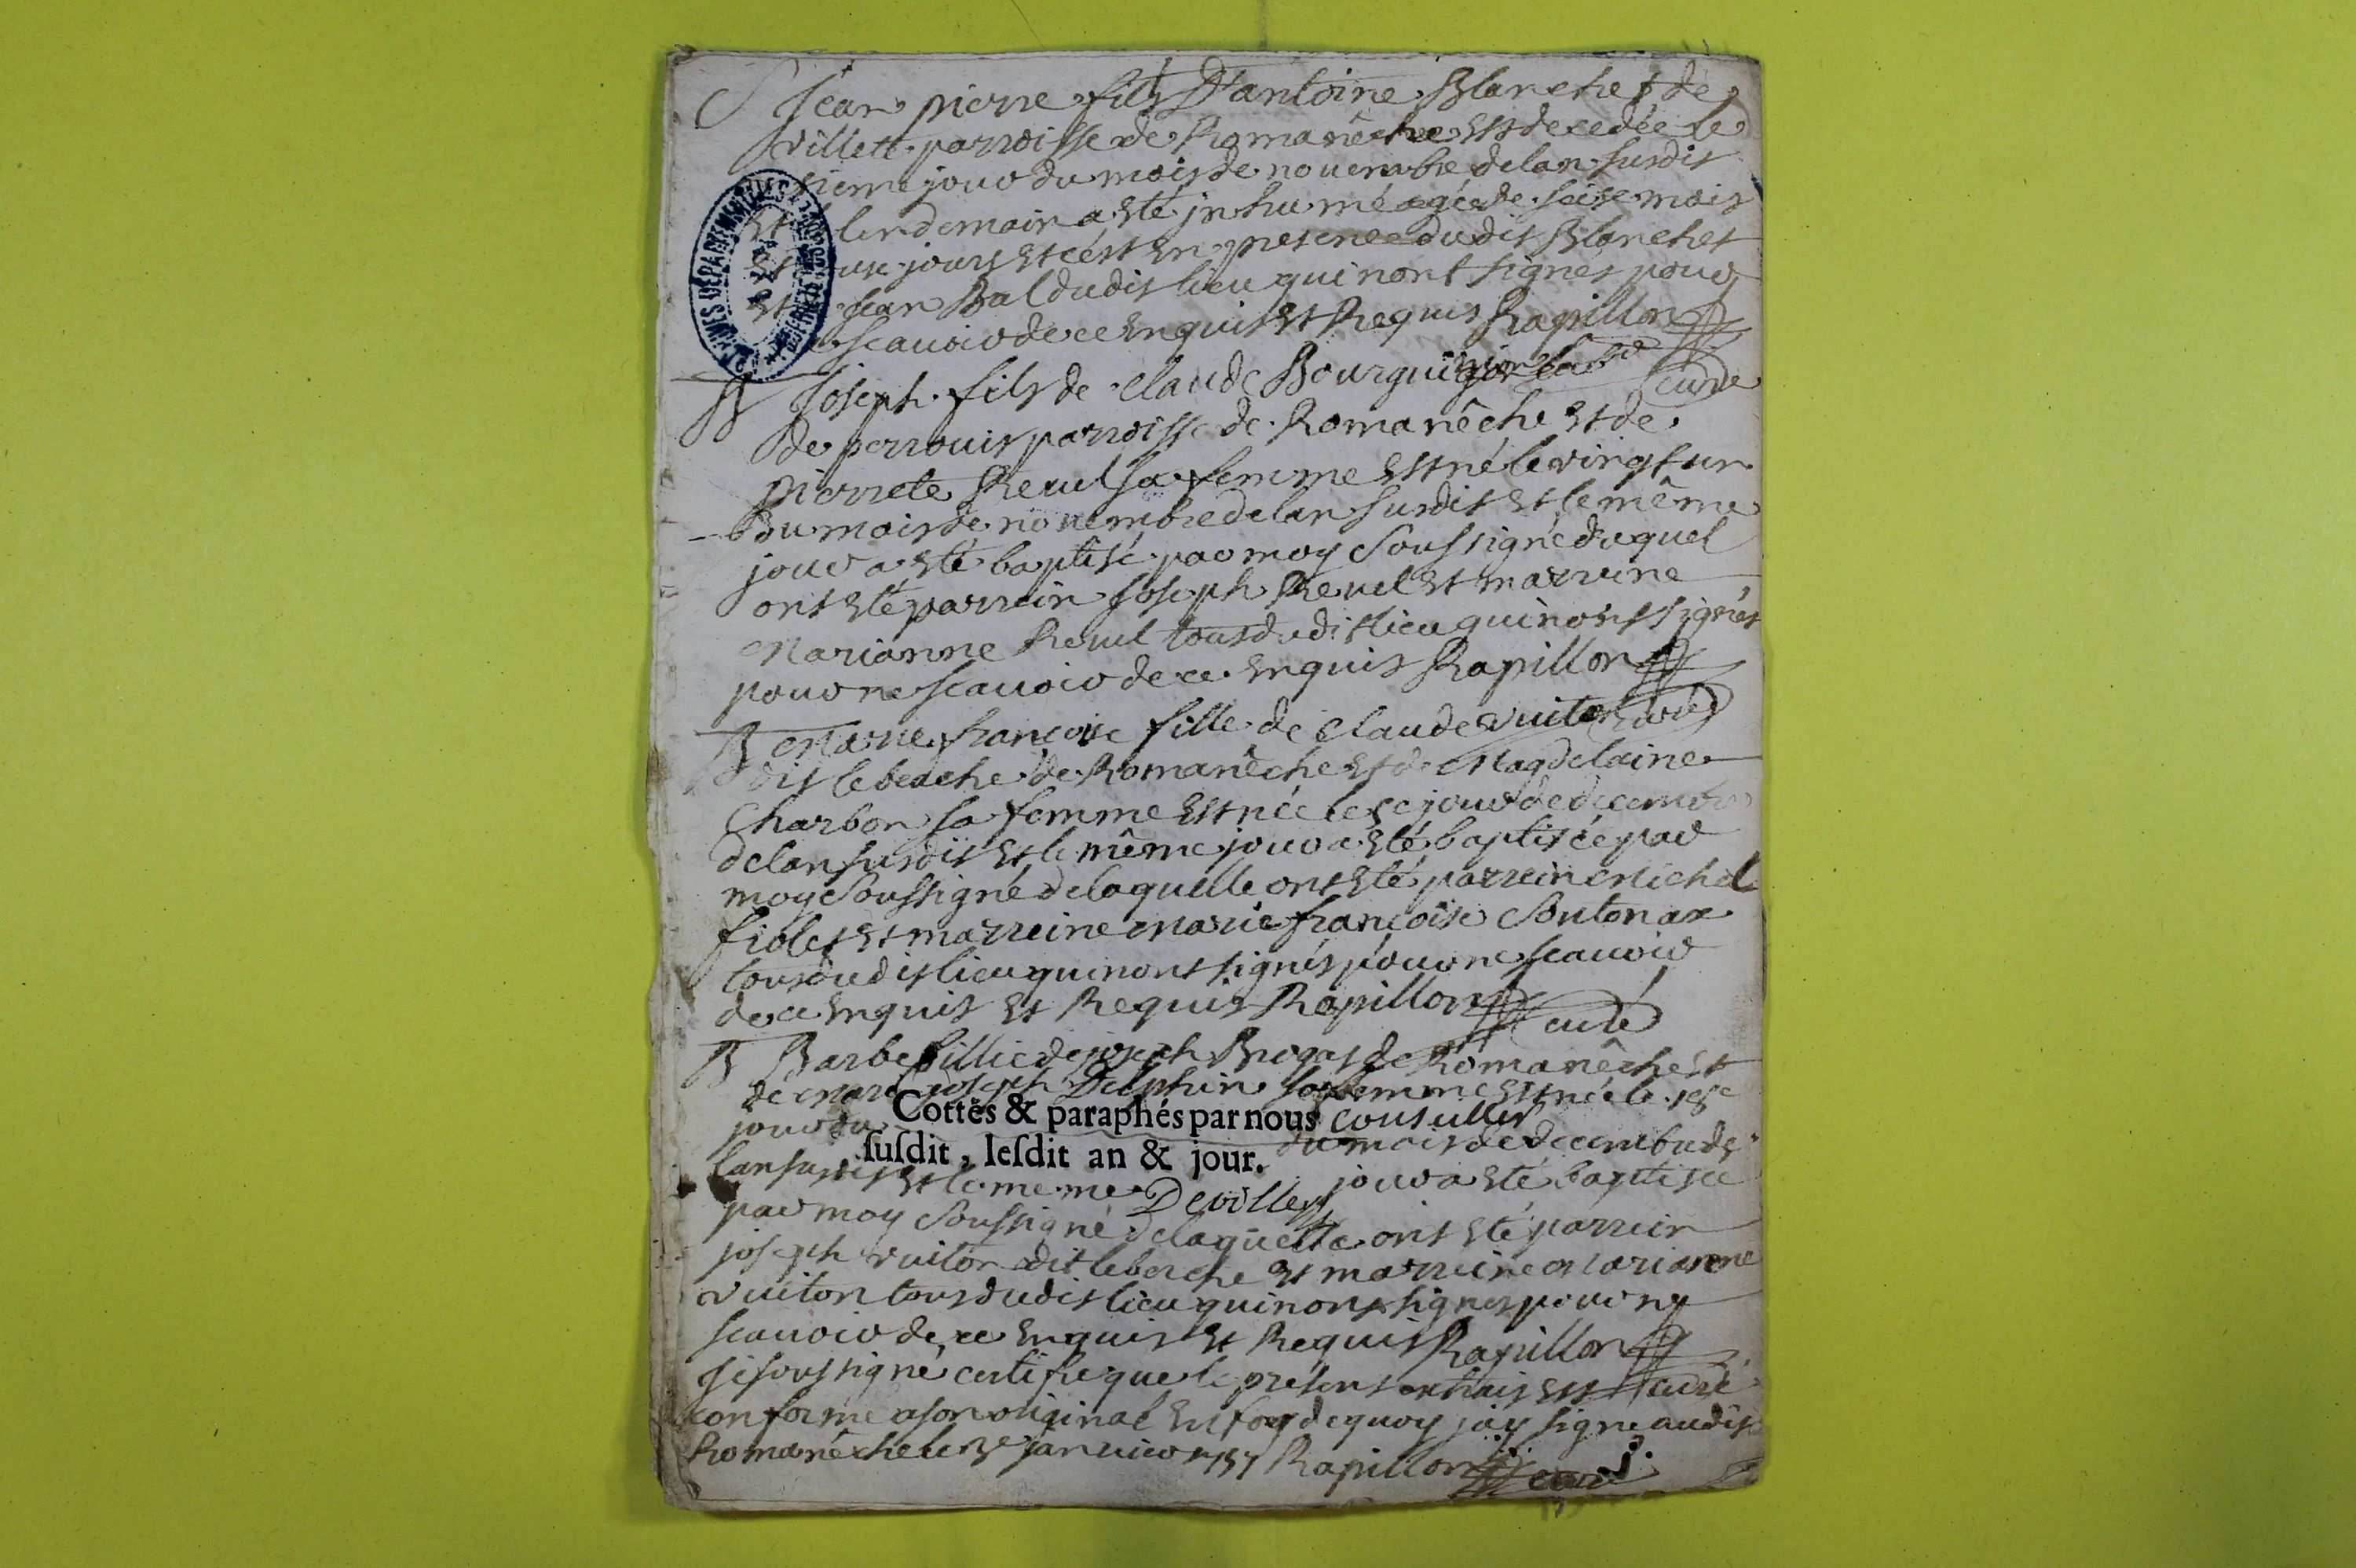 S Jean pierre fils D'antoine Blanchet de
villette parroisse de Romanêche est decedée le
jour du mois de novembre de lan susdit
et lendemain a eté jnhumé agé de seise mois
et jours et cest en presence dudit Blanchet
et Jean Bal dudit lieu qui nont signés pour
scavoir de ce enquis et Requis Rapillon
curé
B Joseph fils de Claude Bourguignon
de perrouis parroisse de Romanêche et de
pierrete Revel sa femme est né le vingt un
du mois de novembre de lan susdit et le même
jour a eté baptisé par moy soussigné duquel
ont eté parrein Joseph Revel et marreine
Marianne Revel tous dudit lieu qui nont signés
pour ne scavoir de ce enquis Rapillon
curé
B Marie françoise fille de Claude vuiton
dit leberche de Romanêche et de Magdelaine
Charbon sa femme est née le jour de decembre
de lan susdit et le même jour a eté baptisée par
moy soussigné de laquelle ont eté parrein Michel
fiolet et marreine marie françoise Soutonax
tous dudit lieu qui nont signés pour ne scavoir
de ce enquis et Requis Rapillon curé
B Barbe fillie de joseph Brogat de Romanêche et
de marie joseph Delphin sa femme est née le 18e
jour du
Cottés & paraphés par nous Conseiller
du mois de decembre de
ſuſdit, leſdit an & jour.
lan susdit et le meme jour a eté baptisée
Deville
par moy soussigné de laquelle ont eté parrein
joseph vuiton dit leberche et marreine Marianne
vuiton tous dudit lieu qui nont signés pour ne
scavoir de ce enquis et Requis Rapillon
curé
Je soussigné certifie que le present extrait est
conforme a son original en foy de quoy jay signe audit
Romanêche le janvier 1757 Rapillon curé